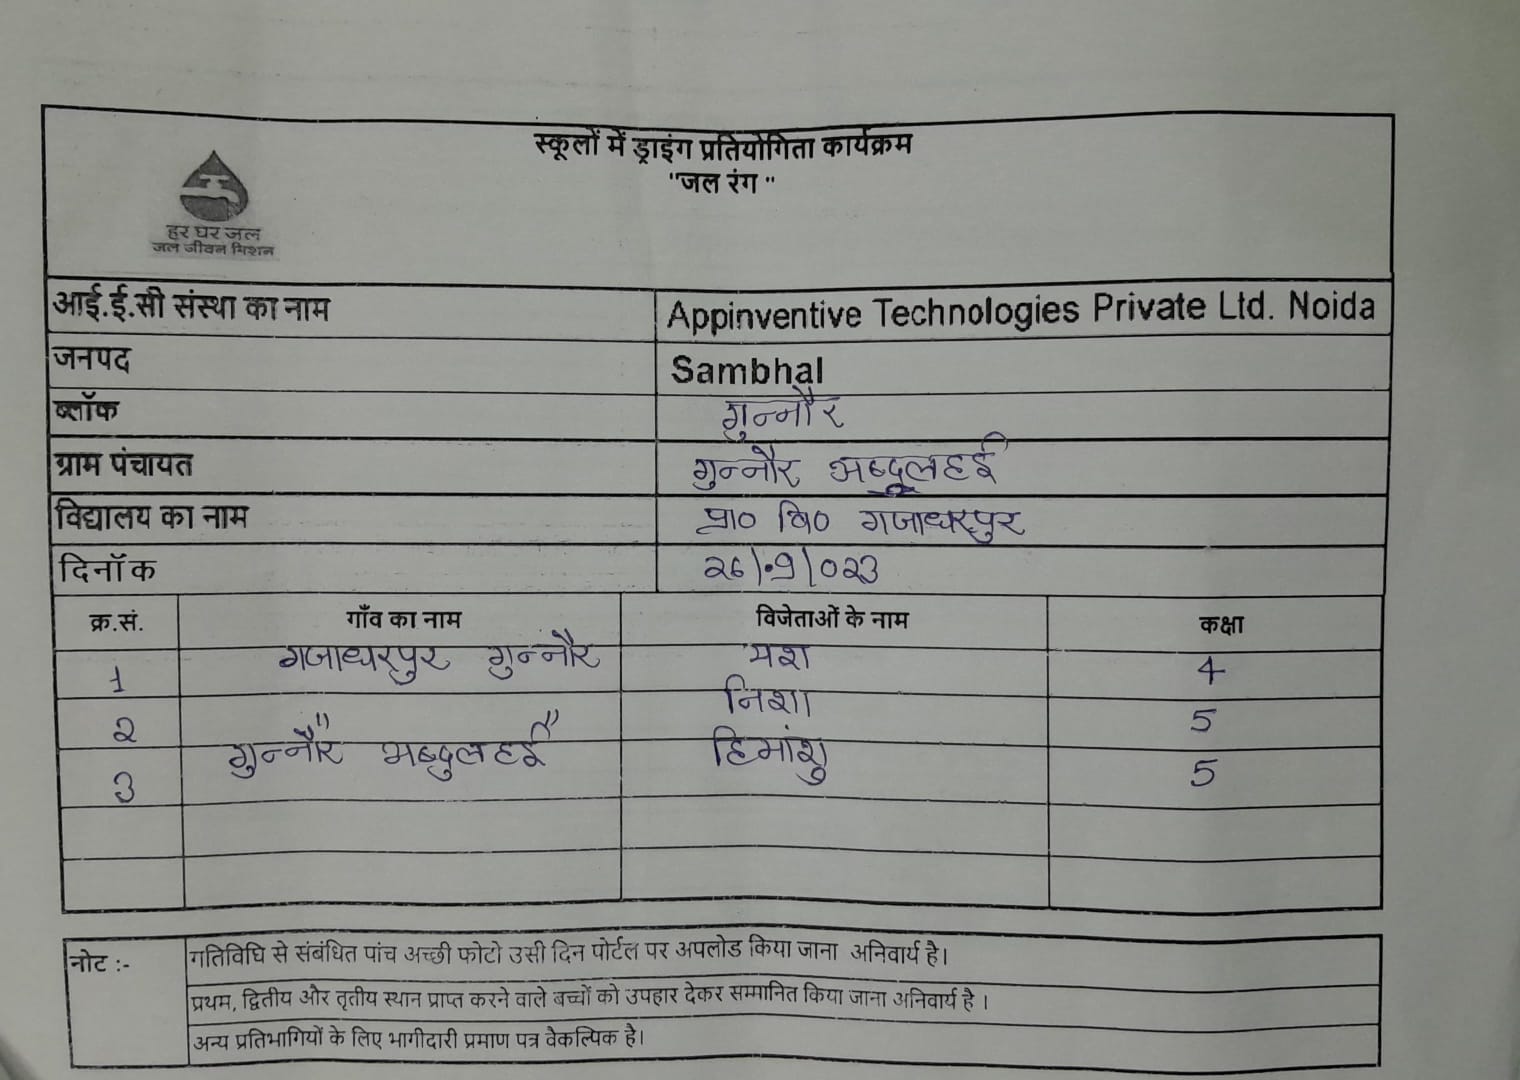 स्कूलों में ड्राइंग प्रतियोगिता कार्यक्रम
"जल रंग "
हर घर जल
जल जीवन मिशन
आई.ई.सी संस्था का नाम Appinventive Technologies Private Ltd. Noida
जनपद Sambhal
ब्लॉक गुन्नौर
ग्राम पंचायत गुन्नौर अब्दुलहई
विद्यालय का नाम प्रा० वि० गजाधरपुर
दिनॉक २६/०९/०२३
क्र.सं. गाँव का नाम विजेताओं के नाम कक्षा
1 गजाधरपुर गुन्नौर यश 4
२ " " निशा 5
३ गुन्नौर अब्दुलहई हिमांशु 5
नोट :- गतिविधि से संबंधित पांच अच्छी फोटो उसी दिन पोर्टल पर अपलोड किया जाना अनिवार्य है।
प्रथम, द्वितीय और तृतीय स्थान प्राप्त करने वाले बच्चों को उपहार देकर सम्मानित किया जाना अनिवार्य है ।
अन्य प्रतिभागियों के लिए भागीदारी प्रमाण पत्र वैकल्पिक है।